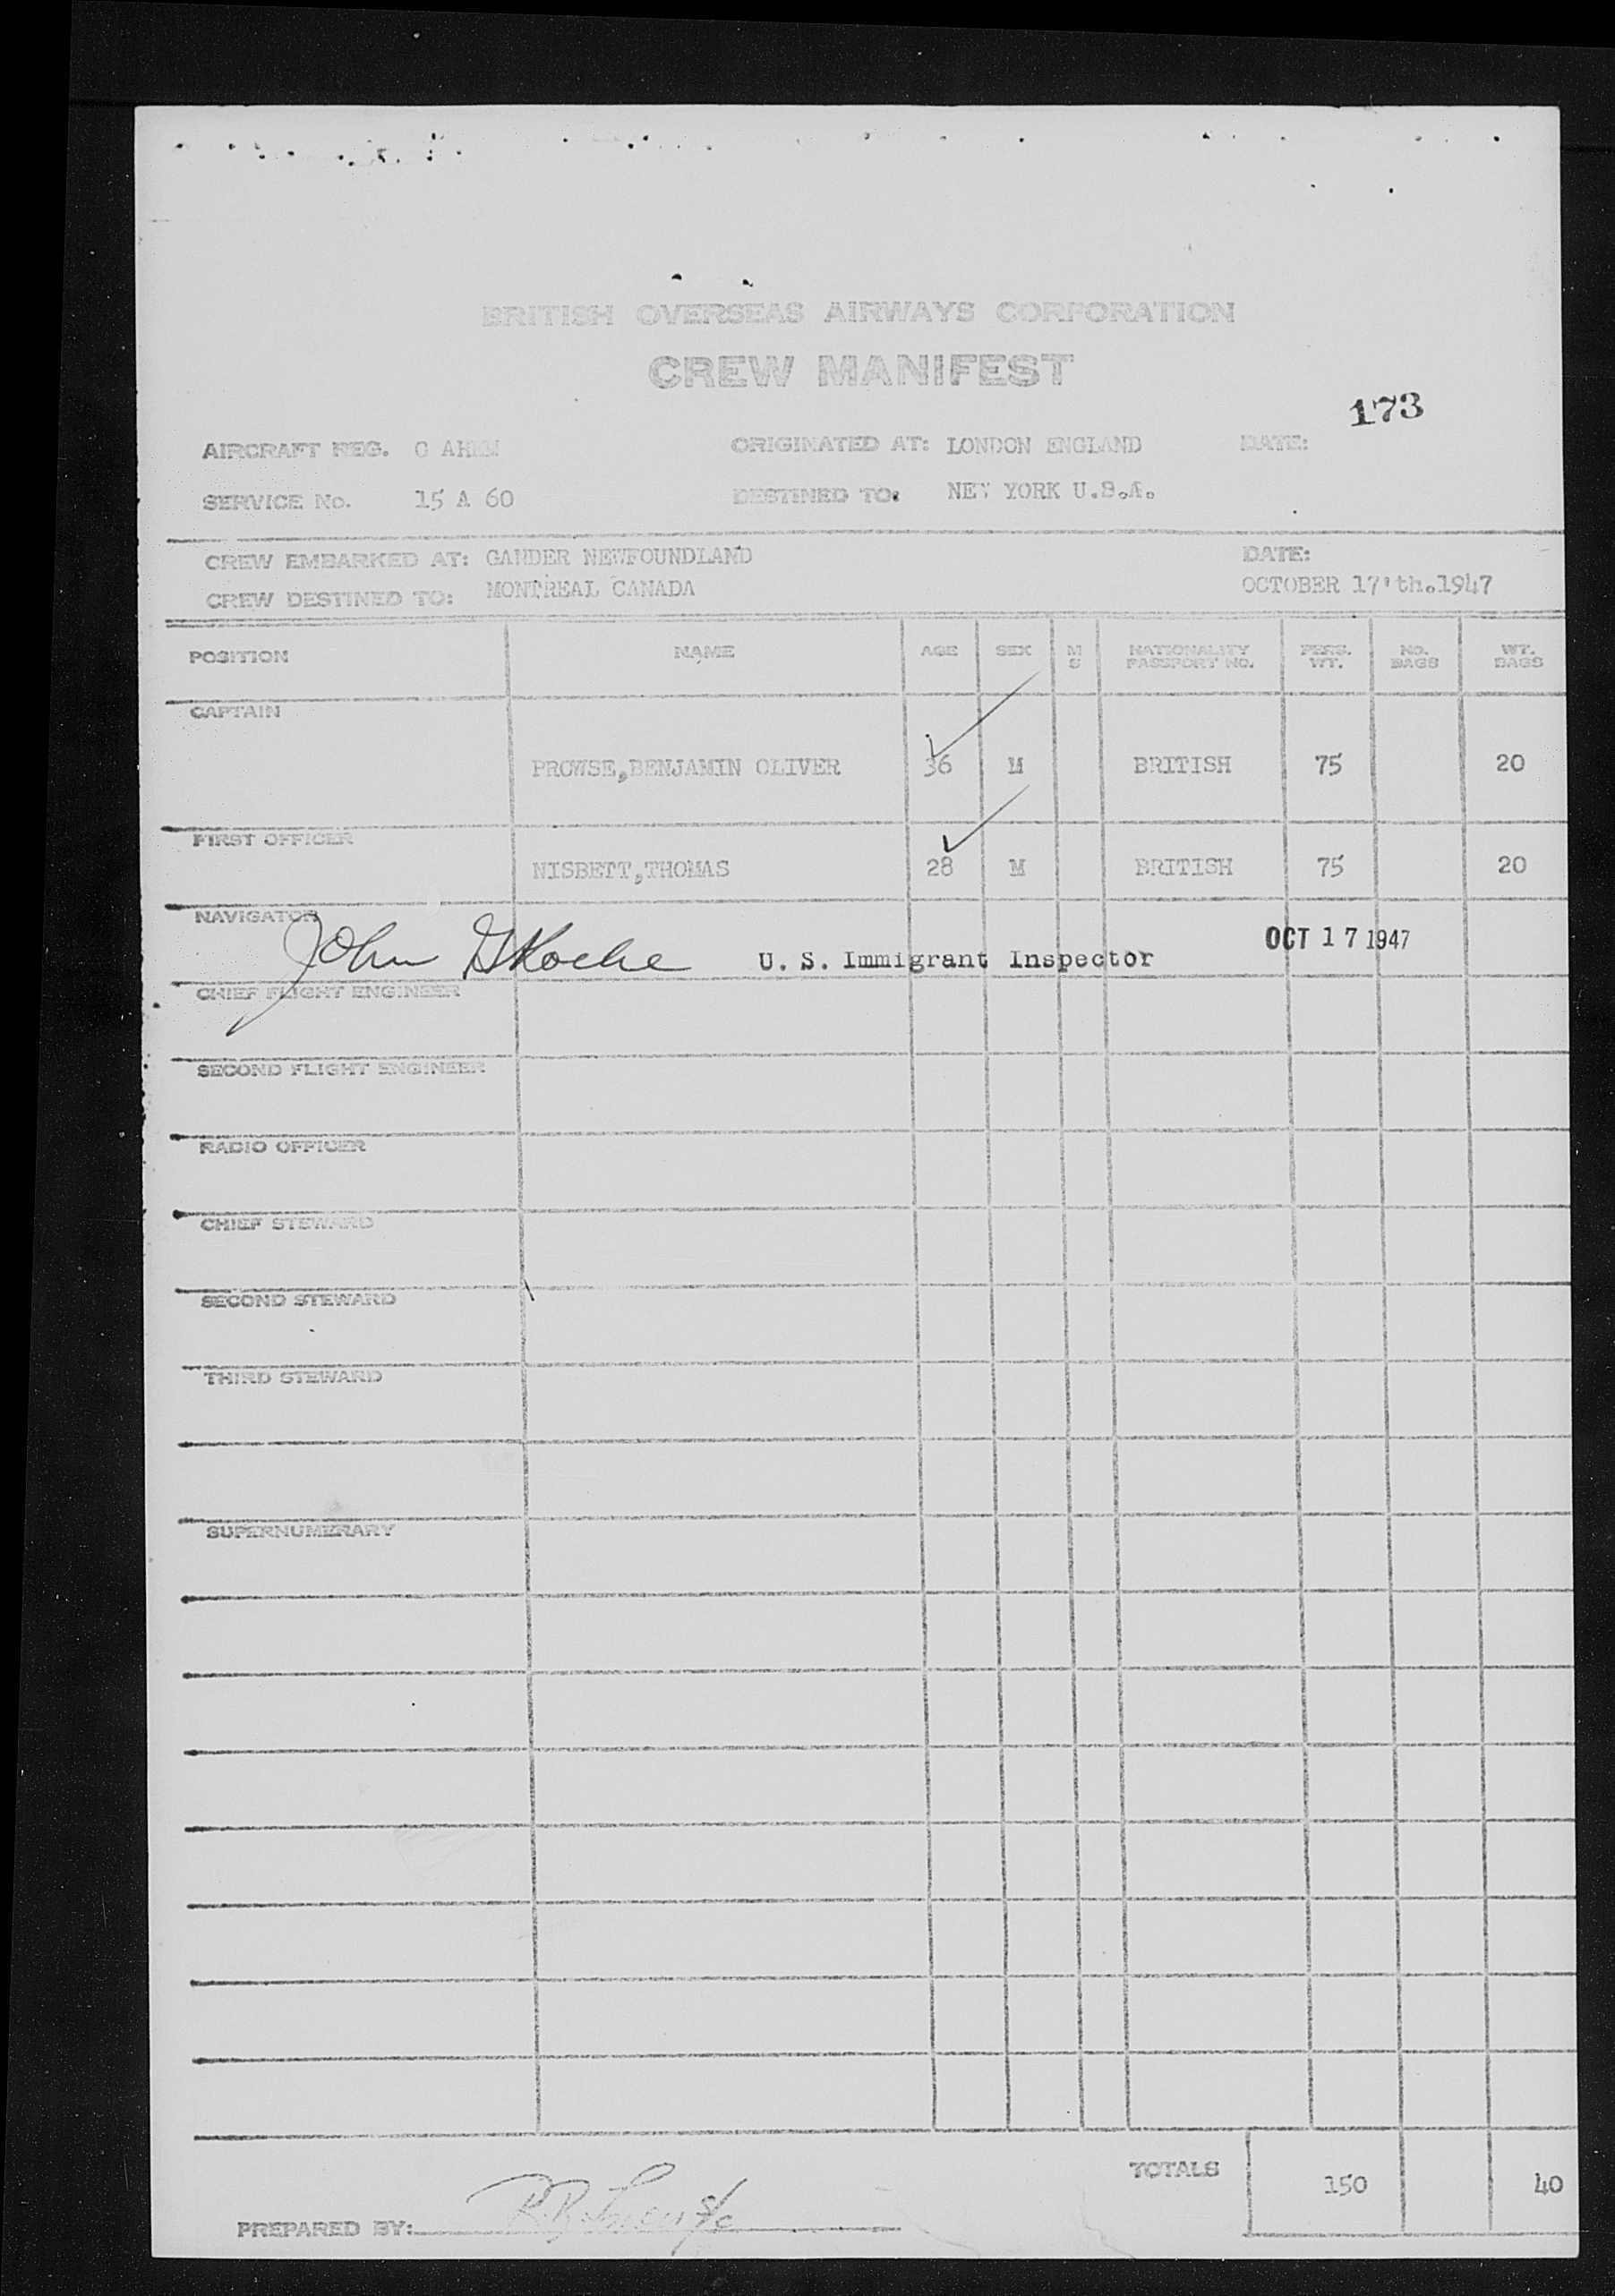 BRITISH OVERSEAS AIRWAYS CORPORATION
CREW MANIFEST
173
AIRCRAFT REG. G ORIGINATED AT: LONDON ENGLAND DATE:
SERVICE No. 15 A 60 DESTINED TO: NEW YORK U.S.A.
CREW EMBARKED AT: GANDER NEWFOUNDLAND DATE:
CREW DESTINED TO: MONTREAL CANADA OCTOBER 17'th.1947
POSITION NAME AGE SEX M S NATIONALITY PASSPORT NO. PERS. WT. NO. BAGS WT. BAGS
CAPTAIN
PROWSE,BENJAMIN OLIVER 36 M BRITISH 75 20
FIRST OFFICER
NISBETT,THOMAS 28 M BRITISH 75 20
NAVIGATOR
John U. S. Immigrant Inspector OCT 17 1947
CHIEF FLIGHT ENGINEER
SECOND FLIGHT ENGINEER
RADIO OFFICER
CHIEF STEWARD
SECOND STEWARD
THIRD STEWARD
SUPERNUMERARY
TOTALS 150 40
PREPARED BY: